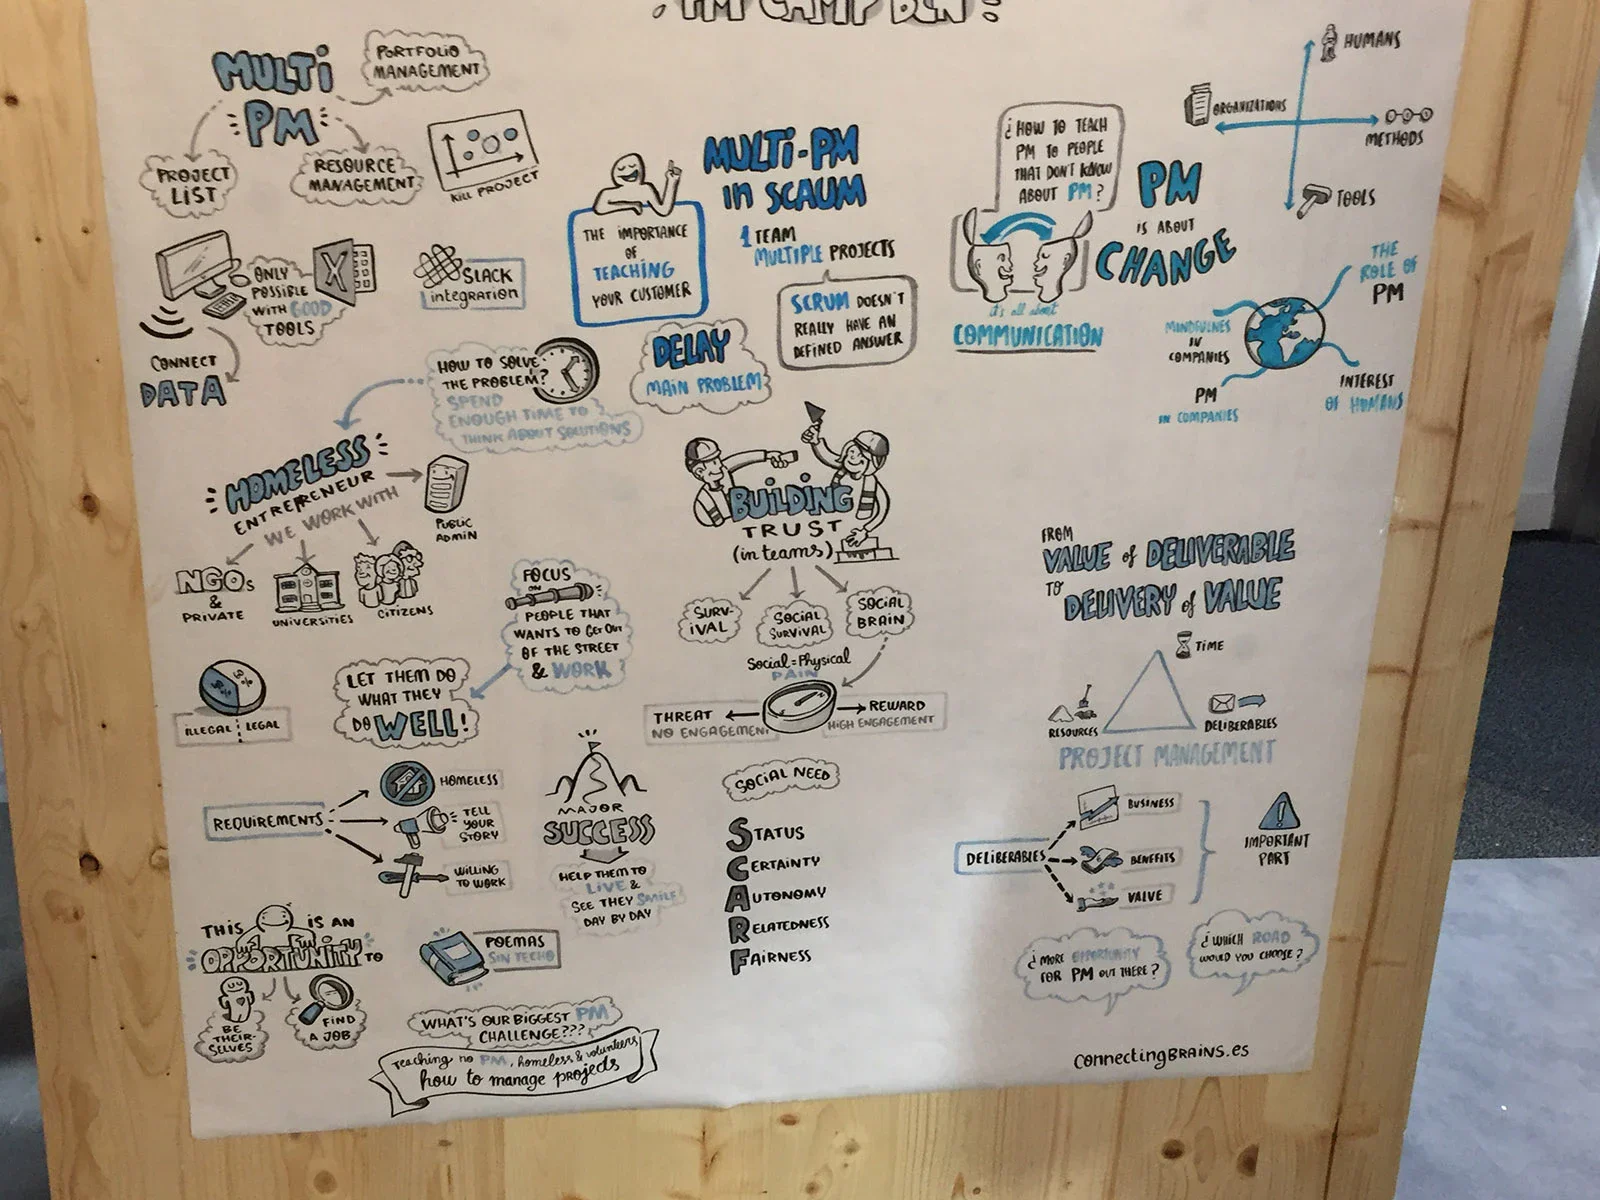 PM CAMP BCN
MULTI
PM
PORTFOLIO
MANAGEMENT
PROJECT
LIST
RESOURCE
MANAGEMENT
KILL PROJECT
ONLY
POSSIBLE
WITH GOOD
TOOLS
X
SLACK
integration
CONNECT
DATA
THE IMPORTANCE
OF
TEACHING
YOUR CUSTOMER
MULTI-PM
IN SCRUM
1 TEAM
MULTIPLE PROJECTS
SCRUM DOESN'T
REALLY HAVE AN
DEFINED ANSWER
DELAY
MAIN PROBLEM
HOW TO SOLVE
THE PROBLEM?
SPEND
ENOUGH TIME TO
THINK ABOUT SOLUTIONS
¿HOW TO TEACH
PM TO PEOPLE
THAT DON'T KNOW
ABOUT PM?
it's all about
COMMUNICATION
PM
IS ABOUT
CHANGE
HUMANS
ORGANIZATIONS
METHODS
TOOLS
THE
ROLE OF
PM
MINDFULNES
IN
COMPANIES
PM
IN COMPANIES
INTEREST
OF HUMANS
HOMELESS
ENTREPRENEUR
WE WORK WITH
PUBLIC
ADMIN
NGOs
&
PRIVATE
UNIVERSITIES
CITIZENS
FOCUS
ON
PEOPLE THAT
WANTS TO GET OUT
OF THE STREET
& WORK
ILLEGAL
LEGAL
LET THEM DO
WHAT THEY
DO WELL!
REQUIREMENTS
HOMELESS
TELL
YOUR
STORY
WILLING
TO WORK
MAJOR
SUCCESS
HELP THEM TO
LIVE &
SEE THEY SMILE
DAY BY DAY
THIS IS AN
OPPORTUNITY TO
BE
THEIR-
SELVES
FIND
A JOB
POEMAS
SIN TECHO
WHAT'S OUR BIGGEST PM
CHALLENGE???
Teaching no PM, homeless & volunteers
how to manage projects
BUILDING
TRUST
(in teams)
SURV-
IVAL
SOCIAL
SURVIVAL
SOCIAL
BRAIN
Social=Physical
PAIN
THREAT
NO ENGAGEMENT
REWARD
HIGH ENGAGEMENT
SOCIAL NEED
STATUS
CERTAINTY
AUTONOMY
RELATEDNESS
FAIRNESS
FROM
VALUE of DELIVERABLE
TO
DELIVERY of VALUE
TIME
RESOURCES
DELIBERABLES
PROJECT MANAGEMENT
DELIBERABLES
BUSINESS
BENEFITS
VALUE
IMPORTANT
PART
¿MORE OPPORTUNITY
FOR PM OUT THERE?
¿WHICH ROAD
WOULD YOU CHOOSE?
CONNECTINGBRAINS.ES